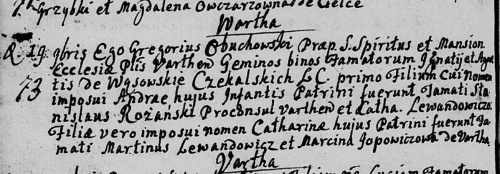 Grzybki et Magdalena Owczarzowna de Cielce
Wartha
D. 19 9bris Ego Gregorius Obuchowski Præp. S. Spiritus et Mansion
Ecclesiæ Plis Varthen Geminos binos Famatorum Ignatij et
73 tis de Wysowskie Czekalskich L.C. primo Filium Cui Nomen
imposui Andrae hujus Infantis Patrini fuerunt Jamati Sta
nislaus Rożański Proconsul Varthen et Catha. Lewandowicz
Filiæ vero imposui nomen Catharina hujus Patrini fuerunt Ja
mati Martinus Lewandowicz et Marcina Jopowiczowa de Vartha
Vartha